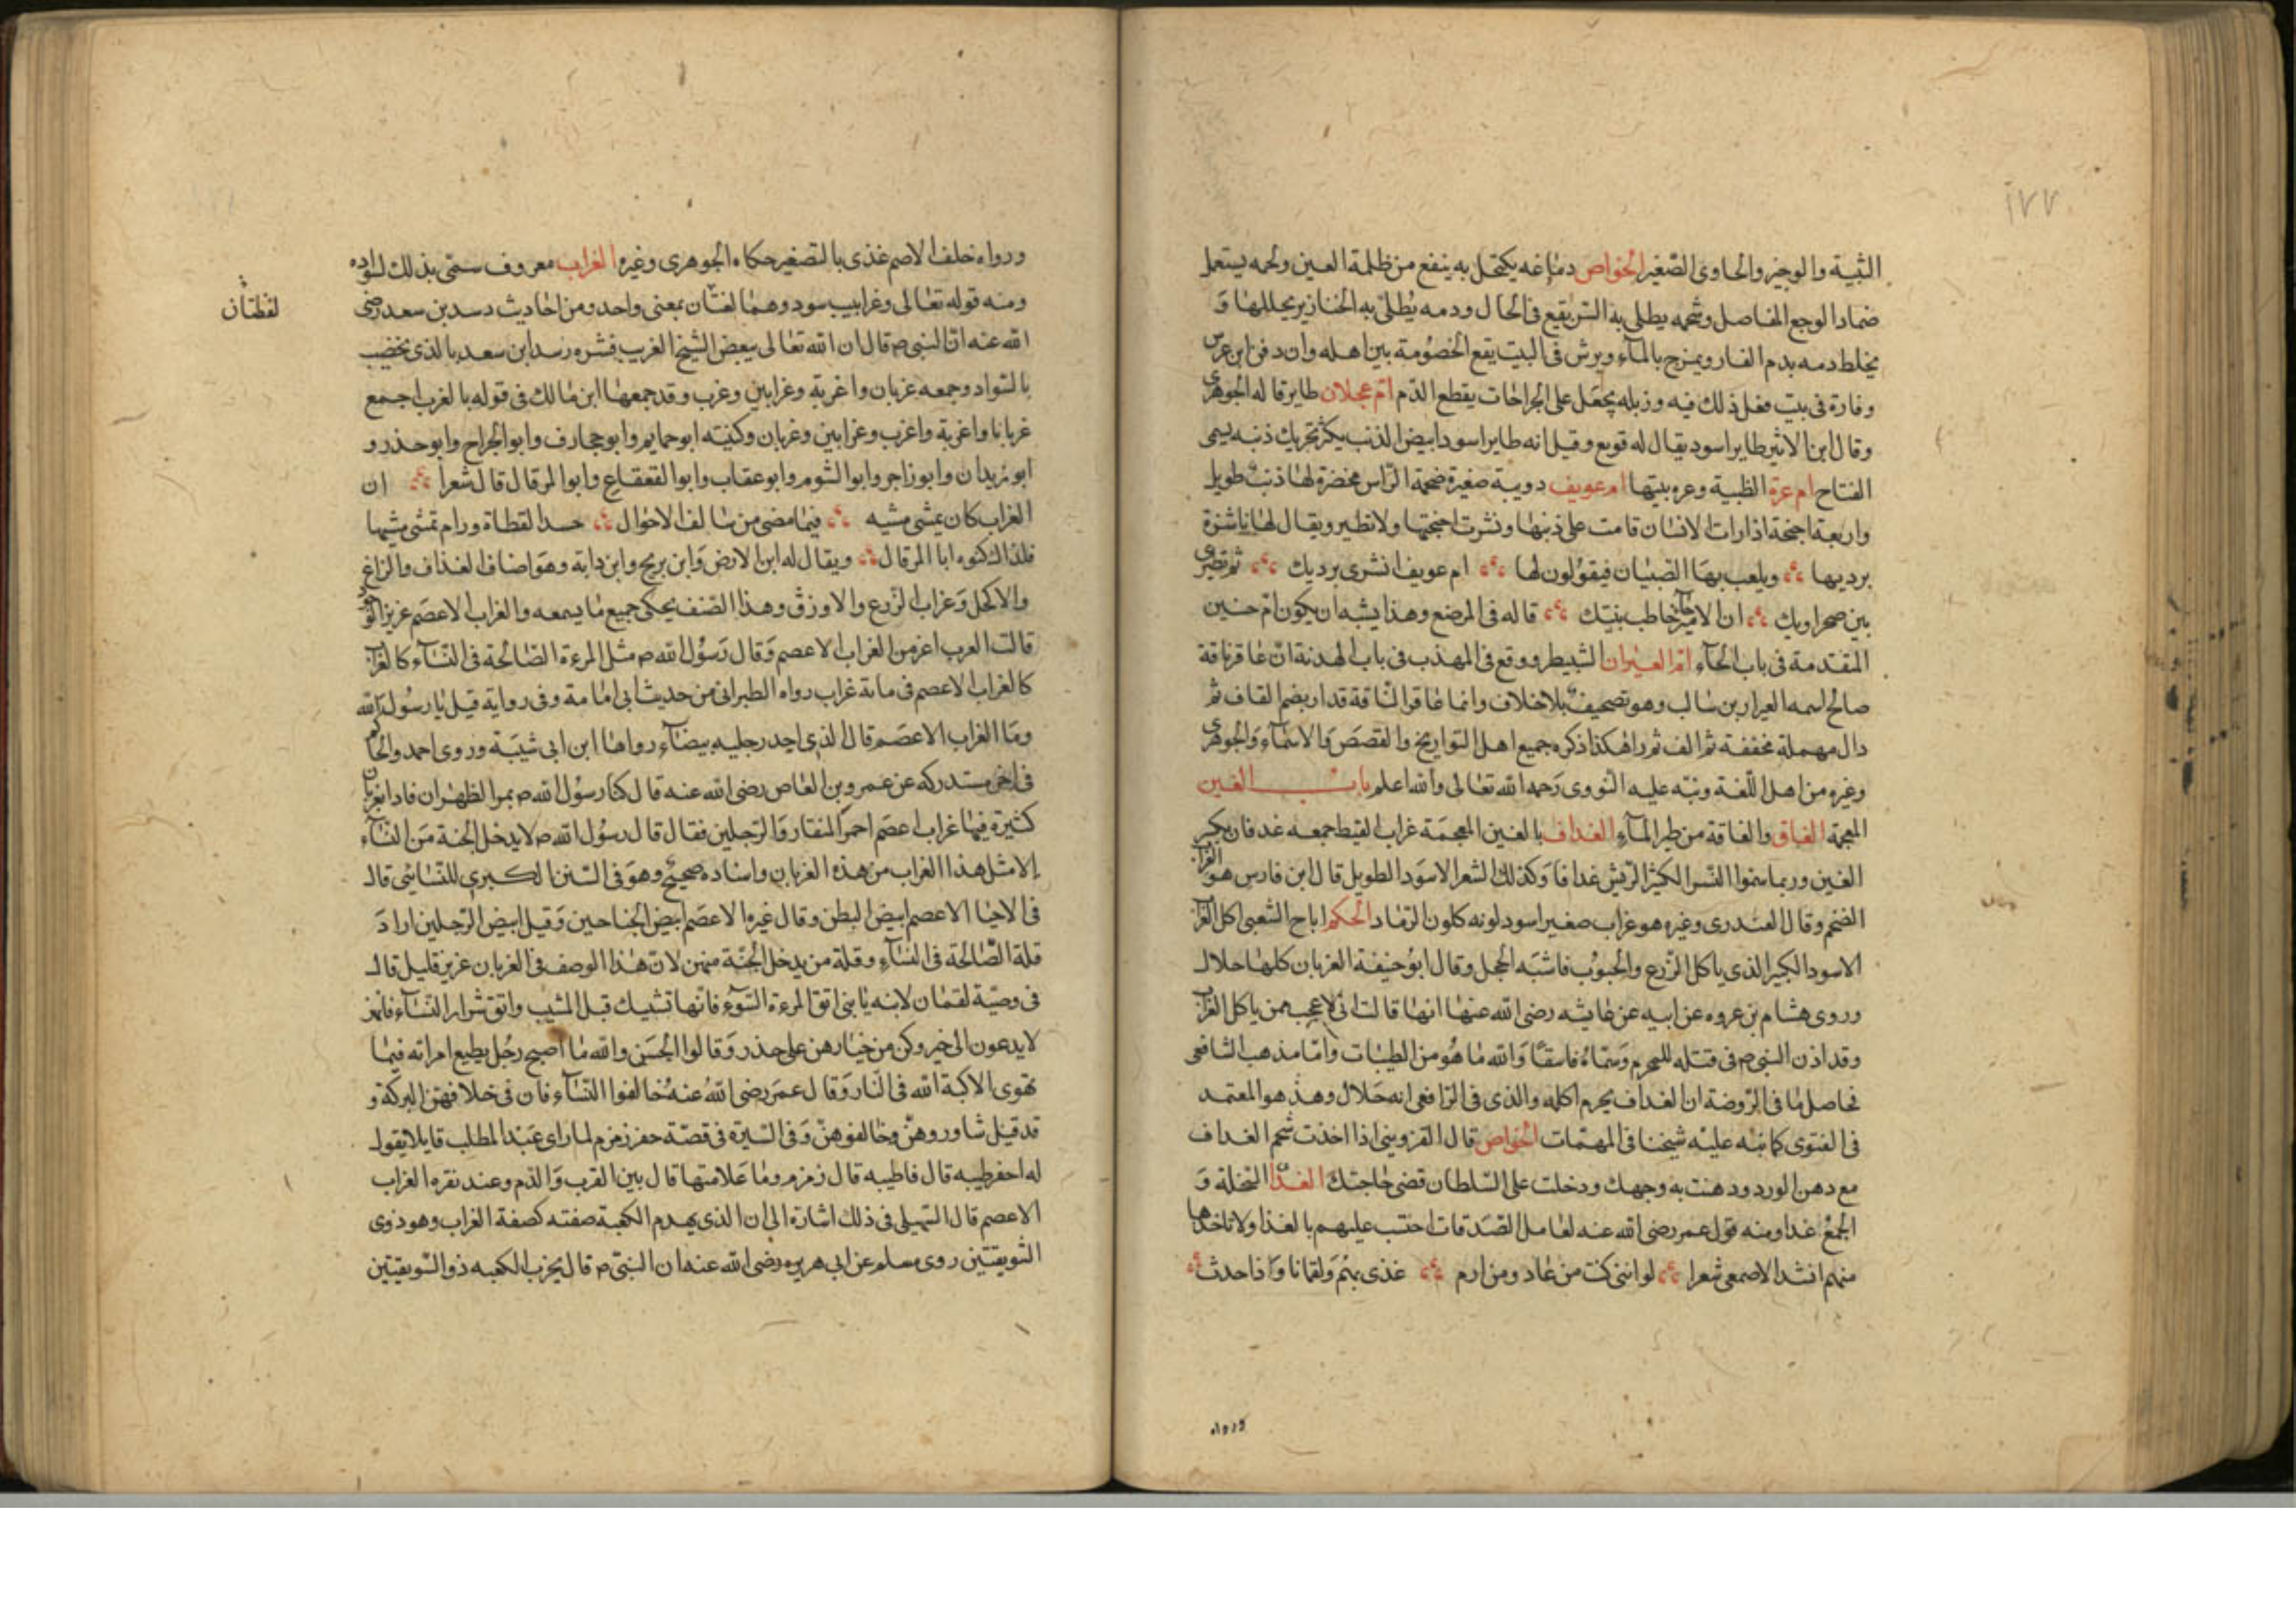 ١٧٧
التنبيه والوجيز والحاوى الصّغير الخواص دماغه يكتحل به ينفع من ظلمة العين ولحمه يستعمل
ضمادا لوجع المفاصل وشحمه يطلى به السن يقع فى الحال ودمه يُطلى به الخنازير يحللها وَ
يخلط دمه بدم الفار ويمزج بالمآء ويرش فى البيت يقع الخصُومة بين اهله وان دفن ابن عرس
وفارة فى بيت فعل ذلك فيه وزبله يجعَل على الجراحات يقطع الدّم امّ عجلان طاير قاله الجوهرى
وقال ابن الاثير طاير اسود يقال له قوبع وقيل انه طاير اسود ابيض الذنب يكثر تحريك ذنبه يسمى
الفتاح ام عزة الظبية وعزه بنيتها ام عويف دويبة صغيرة ضخمة الرّاس مخضرة لها ذنبٌ طويل
واربعة اجنحة اذا رات الانسان قامت على ذنبها ونشرت اجنحتها ولا تطير ويقال لها ناشزة
برديها ويلعب بهَا الصّبيَان فيقوُلون لها ام عويف انشرى برديك ثم تصيرى
بين صحراويك ان الامير خاطب بنيتك قاله فى المرضع وهذا يشبه ان يكون ام حنين
المقتدمة فى باب الحآء امّ العيزان الشيطر ووقع فى المهذب فى باب الهدنة انّ عاقر ناقة
صالح اسمه العيزار بن سالب وهو تصحيفٌ بلا خلاف وانما عاقر النّاقة قدار بضم القاف ثم
دال مهملة مخففة ثم الف ثم راهكذا ذكره جميع اهل التواريخ والقصَص وَالاسمآء وَالجوهرى
وغيره من اهل اللّغة ونبّه عليه النووى رَحمه الله تعَالى والله اعلم باب الغين
المعجمة الغاق والغاقة من طير المآءِ الغداف بالغين المعجمَة غراب القيظ جمعه غدفان بكسر
الغين وربما سَموا النّسر الكثير الرّيش غدافا وَكذلك الشعر الاسوَد الطويل قال ابن فارس هو الغراب
الضخم وقال العَبْدرى وغيره هو غراب صغير اسود لونه كلون الرّماد الحكم اباح الشعبى اكل الغراب
الاسود الكبير الذى ياكل الزّرع والحبوُب فاشبَه الحجل وقال ابوُ حنيفة الغربان كلها حلال
وروى هشام بن عروه عن ابيه عن عايشه رضى الله عنهَا انها قالت انّى لاعجب ممن ياكل الغراب
وقد اذن النبى ص فى قتله للمحرم وَسمّاهُ فاسقًا وَالله مَا هُو من الطيبَات وامّا مذهب الشافعى
فحاصل مَا فى الرّوضة ان الغداف يحرم اكله والذى فى الرّافعى انه حَلال وهذ هو المعتمد
فى الفتوى كما نبّه عليْه شيخنا فى المهمّات الخواص قال القزوينى اذا اخذت شحم الغداف
مع دهن الورد ودهنت به وجهك ودخلت على السّلطان قضى حَاجتك الغذَّا السّخلة وَ
الجمعُ غذا ومنه قول عمر رضى الله عنه لعَامل الصّدقات احتسب عليهم بالغذا ولا تاخذها
منهم انشد الاصمعى شعرا لو اننى كنت من عَاد ومن ارم غذى بهُم وَلقمانا وَ ذا حدث
ورواه
ورواه خلف الاصم غذى بالتصغير حكاه الجوهرى وغيره الغراب معروف سمّى بذلك لسواده
ومنه قوله تعَالى وغرابيب سود وهمَا لغتَان بمعنى واحد ومن احَاديث رسد بن سعد رضى
لفظتان
الله عنه انّ النبى ص قال ان الله تعَالى يبغض الشيخ الغربيب فسّره رسد ابن سعد بالذى يخضب
بالسّواد وجمعه غربان واغربة وغرابين وغرب وقد جمعهَا ابن مَالك فى قوله بالغرب اجمع
غربانا واغربة واغرب وغرابين وغربان وكنيته ابو حايم وابو حجارف وابو الجراح وابو حذر و
ابو زيدان وابو زاجر وابو الشوم وابو عقاب وابو القعقاع وابو المرقال قال شعرا ان
الغراب كان يمشى مشيه فيمَا مضى من سَالف الاحوال حسد القطاة ورام تمشى مشيها
فلذاك كنوه ابا المرقال ويقال له ابن الارض وَابن بريح وابن داية وهوَ اصناف الغداف والزاغ
والاكحل وَغراب الزّرع والاورق وهذا الصّنف يحكى جميع مَا يسمعه والغراب الاعصَم عزيز الوجُود
قالت العرب اعز من الغراب الاعصم وَقال رَسوُل الله ص مثل المرءة الصّالحة فى النّسآء كالغراب
كالغراب الاعصم فى ماىة غراب رواه الطبرانى من حديث ابى امَامة وفى رواية قيل يَا رسُول الله
ومَا الغراب الاعصَم قال الذى احد رجليه بيضآء رواها ابن ابى شيبَة وروى احمد والحاكم
فى اخر مستدركه عن عمرو بن العَاص رضى الله عنه قال كنا رسوُل الله ص بمر الظهران فاذا بغربان
كثيرة فيها غراب اعصَم احمر المنقار وَالرّجلين فقال قال رسوُل الله ص لا يدخل الجنة من النسآء
إلا مثل هذا الغراب من هذه الغربان واسناده صحيحٌ وهوَ فى السّنن الكبرى للنّسَائى قال
فى الاحيَا الاعصم ابيض البطن وقال غيره الاعصَم ابيض الجناحين وَقيل ابيض الرّجلين ارادَ
قلة الصَّالحة فى النسَآءِ وقلة من يدخل الجنّة منهن لانّ هٰذا الوصف فى الغربان عزيز قليل قال
فى وصيّة لقمَان لابنه يَا بنى اتق المرءة السّوَء فانّها تشيبك قبل المشيب واتق شرار النّسآء فانّهن
لا يدعون الى خير وكن من خيَارهن على حذر وَقالوا الحَسَن والله مَا اصبح رجُل يطيع امراته فيمَا
تهوى الا كبّه الله فى النّار وَقال عمَر رضى اللهُ عنهُ خالفوا النّسَآء فان فى خلافهن البركة و
قد قيل شاوروهنّ وخَالفوهنّ وَفى السّيرة فى قصّة حفر زمزم لما راى عَبْد المطلب قايلا يقول
له احفر طيبه قال فاطيبه قال زمزم ومَا عَلامتها قال بين الفرث وَالدّم وعند نقره الغراب
الاعصم قال السّهيلى فى ذلك اشارة الى ان الذى يهدم الكعبة صفته كصفة الغراب وهو ذوى
السّويقتين روى مسلم عن ابى هريره رضى الله عنه ان النبىّ ص قال يخرب الكعبه ذو السّويقتين